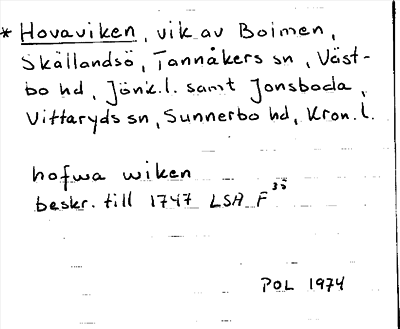 * Hovaviken, vik av Boimen,
Skällandsö, Tannåkers sn, Väst-
bo hd, Jönk.l. samt Jonsboda,
Vittaryds sn, Sunnerbo hd, Kron.l.
hofwa wiken
beskr. till 1747 LSA F 35
POL 1974